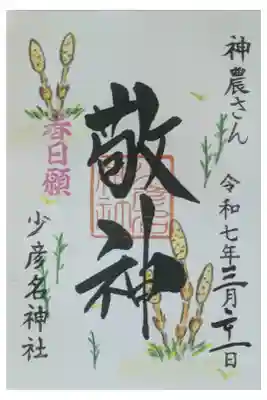 神農さん
令和七年三月二十一日
敬神
春日願
少彦名神社